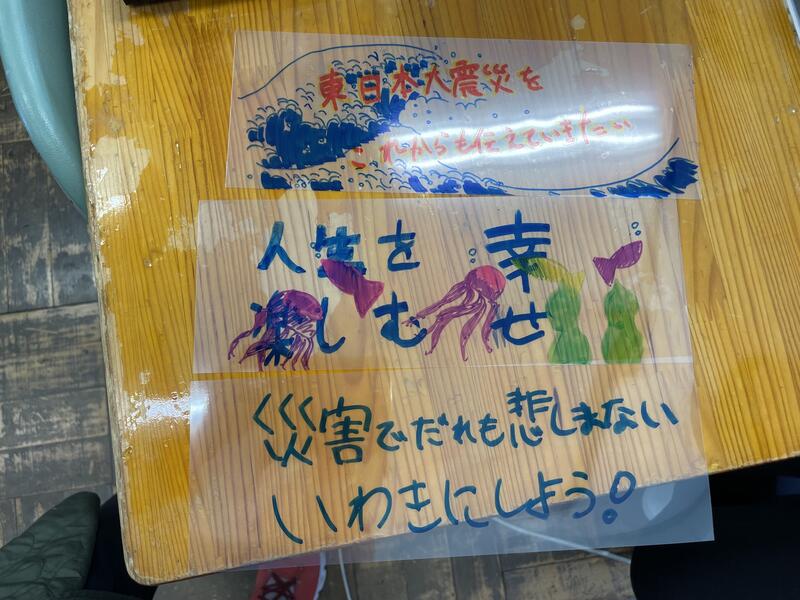 東日本大震災を
これからも伝えていきたい
人生を 幸
楽しむ せ
災害でだれも悲しまない
いわきにしよう!